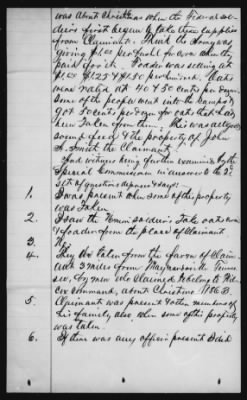 was about Christmas when the Federal sol-
diers first began to take these supplies
from Claimant. I think the Army was
giving $1.00 per bushel for corn when they
paid for it. Fodder was selling at
$1.00 $1.25 & $1.50 per hundred. Oats
were valued at 40 & 50 cents per dozen.
Some of the people went into the camps &
got 50 cents per dozen for oats that had
been taken from them. This was all good
sound feed & the property of John
S. Smith the Claimant.
2nd witness being further examined by the
Special Commissioner in answer to the 2d
set of questions deposes & says:
1. I was present when some of the property
was taken.
2. I saw the Union soldiers take oats corn
& fodder from the place of Claimant
3. No.
4. They was taken from the farm of Claim-
ant 3 miles from Maynardville Tennes-
see, by men who claimed to belong to Wil-
cox command, about Christmas 1863.
5. Claimant was present & other members of
his family also when some of the property
was taken.
6. If there was any officers present I did